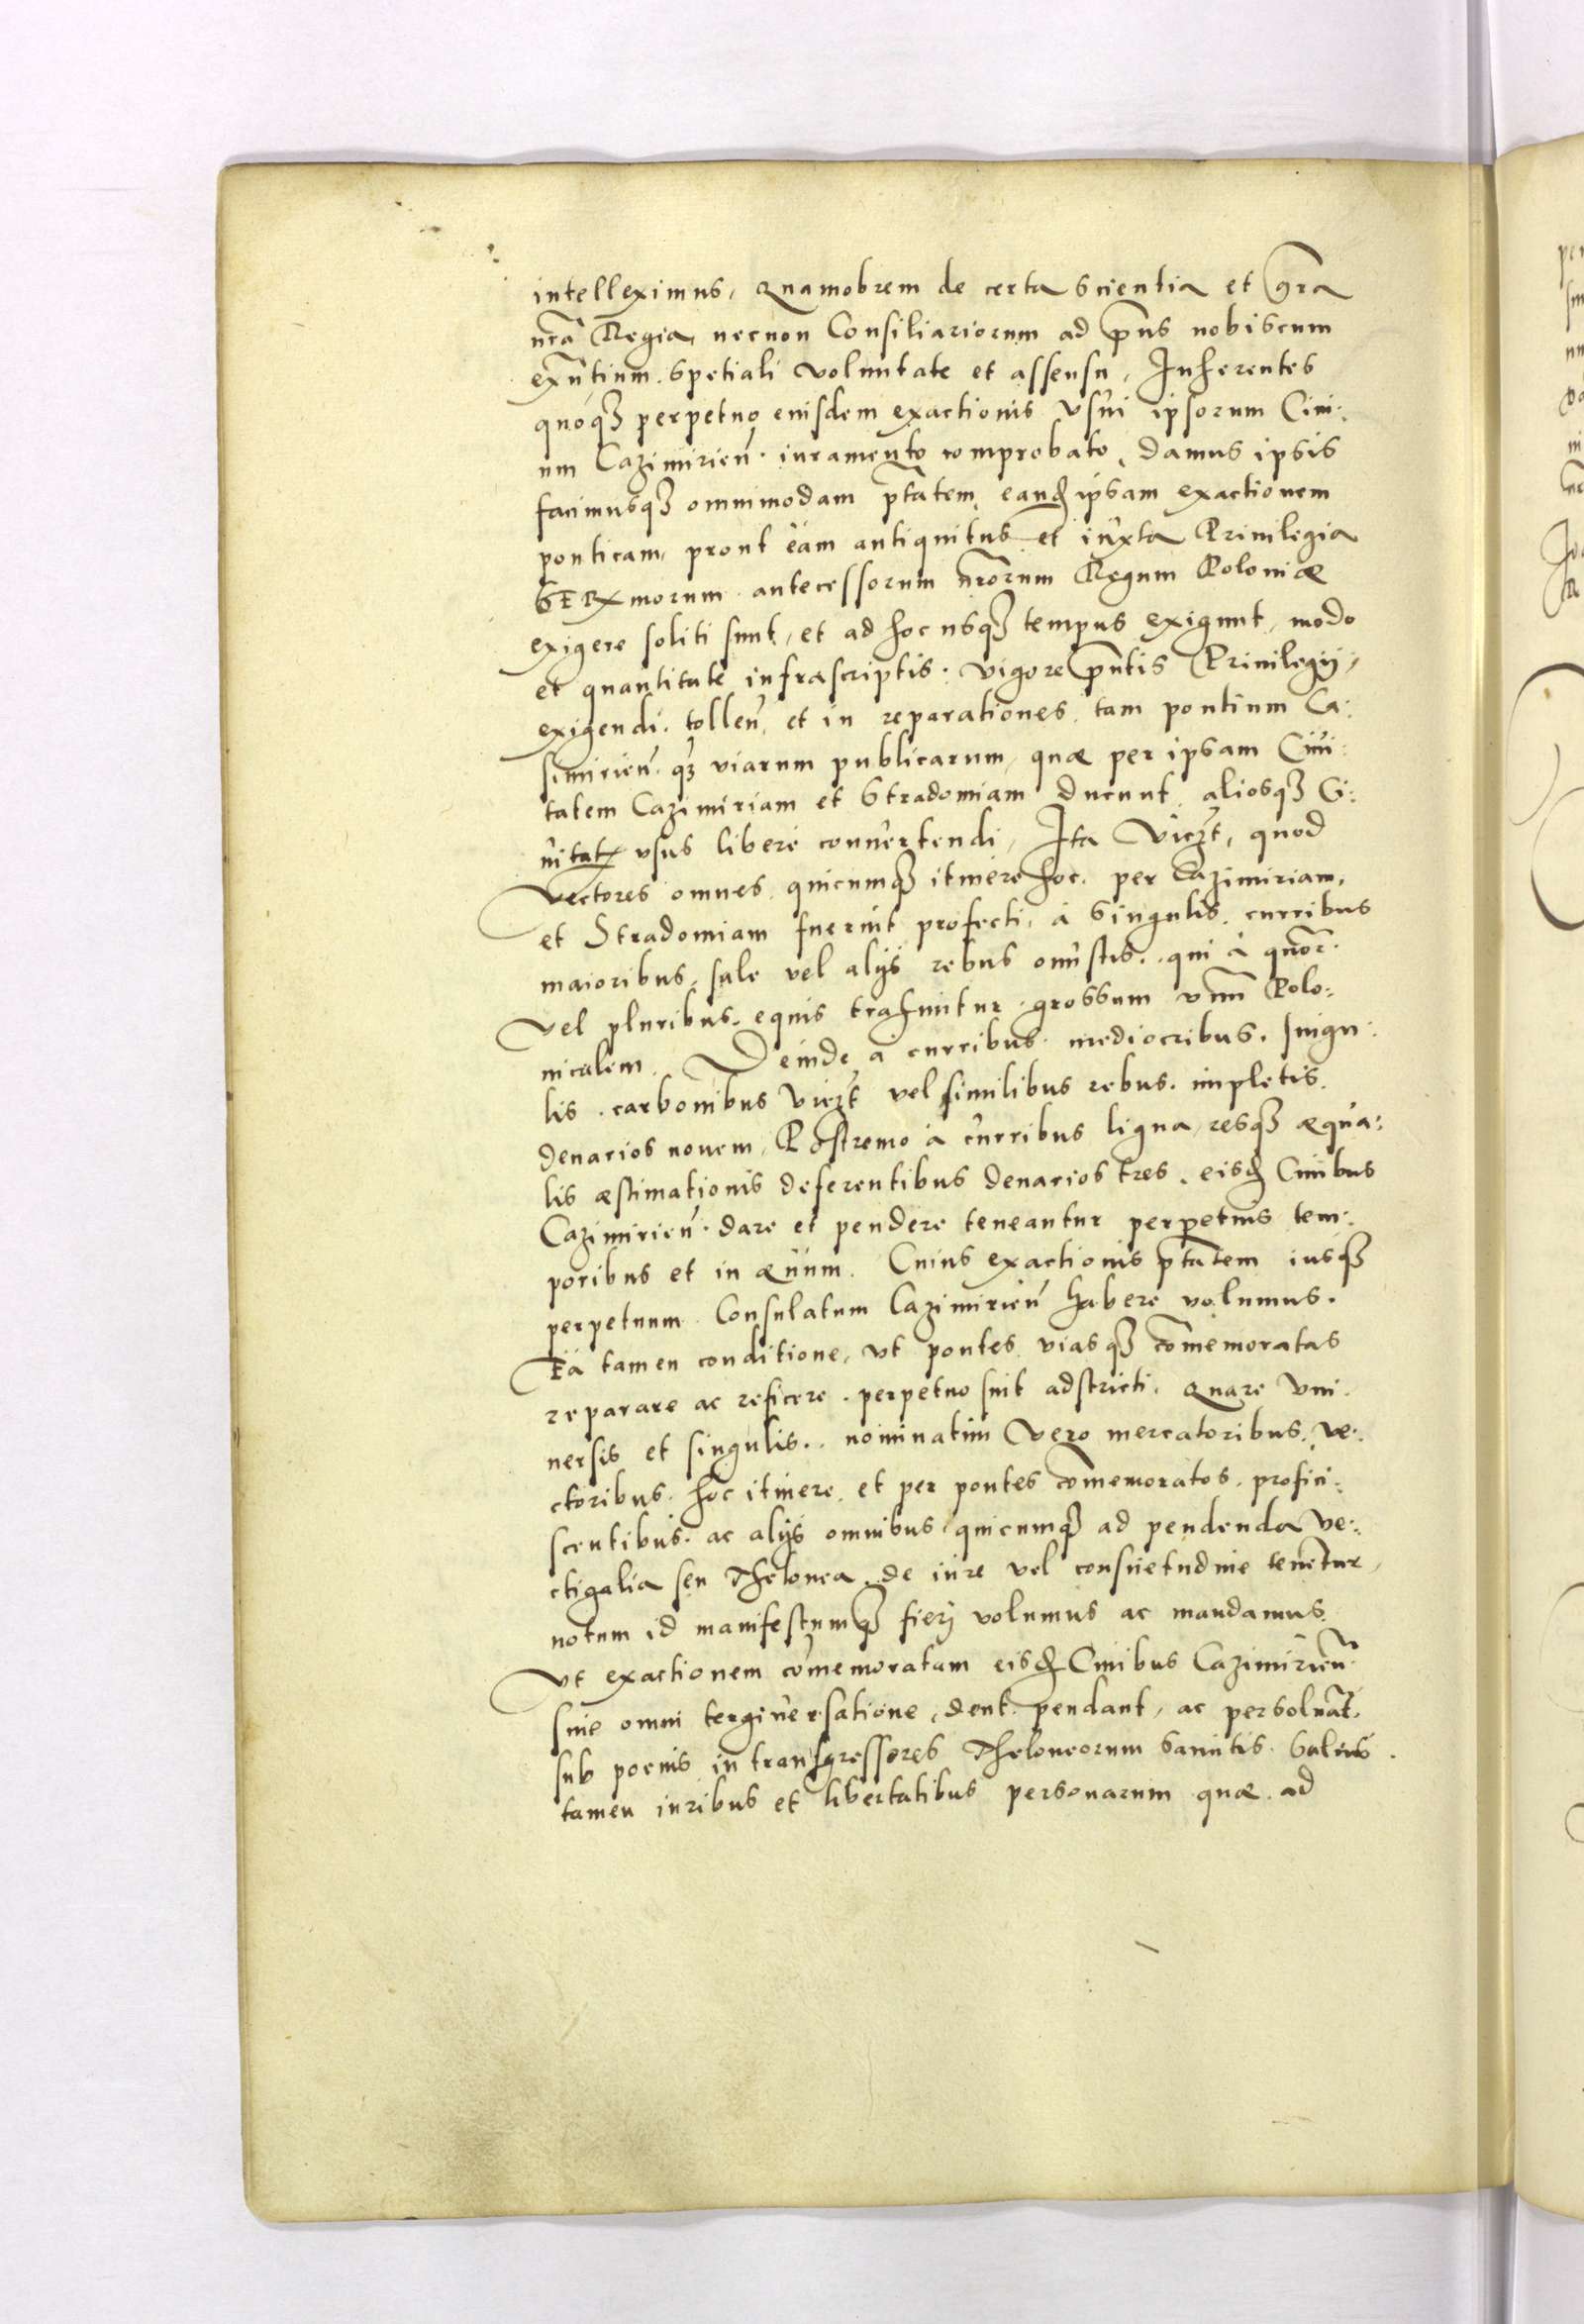 intelleximus, Quamobrem de certa scientia et gr̃a
nrã Regia, necnon Consiliariorum ad pñs nobiscum
exñtium. spetiali voluntate et assensu, Inherentes
quoq3 perpetuo eiusdem exactionis vsui ipsorum Ciui:
um Cazimirieñ. iuramento comprobato, damus ipsis
facimusq3 omnimodam ptãtem, eand ipsam exactionem
ponticam, prout eam antiquitus et iuxta Priuilegia
SERmorum antecessorum nrõrum Regum Poloniæ
exigere soliti sunt, et ad hoc usq3 tempus exigunt, modo
et quantitate infrascriptis. vigore pñtis Priuilegij,
exigendi. tolleñ. et in reparationes. tam pontium Ca:
simirieñ. q3 viarum publicarum, quæ per ipsam Ciui:
tatem Cazimiriam et Stradomiam ducunt, aliosq3 Ci:
uitat vsus libere conuertendi, Ita vicz̃t, quod
vectores omnes, quicumq3 itinere hoc. per Cazimiriam,
et Stradomiam fuerint profecti, à singulis. curribus
maioribus, sale vel alijs rebus onustis. qui à quor̃.
vel pluribus. equis trahuntur. grossum vnũ Polo:
nicalem. Deinde à curribus. mediocribus. singu:
lis. carbonibus vicz̃t vel similibus rebus. impletis.
denarios nouem, Postremo à curribus ligna, resq3 æqua:
lis æstimationis deferentibus denarios tres. eisd Ciuibus
Cazimirieñ. dare et pendere teneantur perpetuis tem:
poribus et in æuum. Cuius exactionis ptãtem iusq3
perpetuum. Consulatum Cazimirieñ habere volumus.
Ea tamen conditione, vt pontes viasq3 cõmemoratas
reparare ac reficere. perpetuo sint adstricti. Quare vni:
uersis et singulis.. nominatim vero mercatoribus. ve:
ctoribus. hoc itinere. et per pontes cõmemoratos. profici:
scentibus. ac alijs omnibus, quicumq3 ad pendenda ve:
ctigalia seu Thelonea. de iure vel consuetudine tenẽtur,
notum id manifestumq3 fierj volumus ac mandamus.
Vt exactionem cõmemoratam eisd Ciuibus Cazimirieñ.
sine omni tergiuersatione, dent. pendant, ac persoluãt.
sub poenis in transgressores Theloneorum sancitis. Saluis.
tamen iuribus et libertatibus personarum quæ. ad